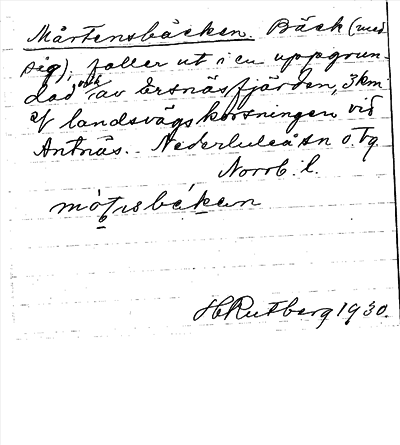 Mårtensbäcken. Bäck (med
sig), faller ut i en uppgrun-
dad vik av Ersnäsfjärden, 3 km
landsvägskorsningen vid
Antnäs. Nederluleå sn o. tg.
Norrb. l.
H Rutberg 1930.